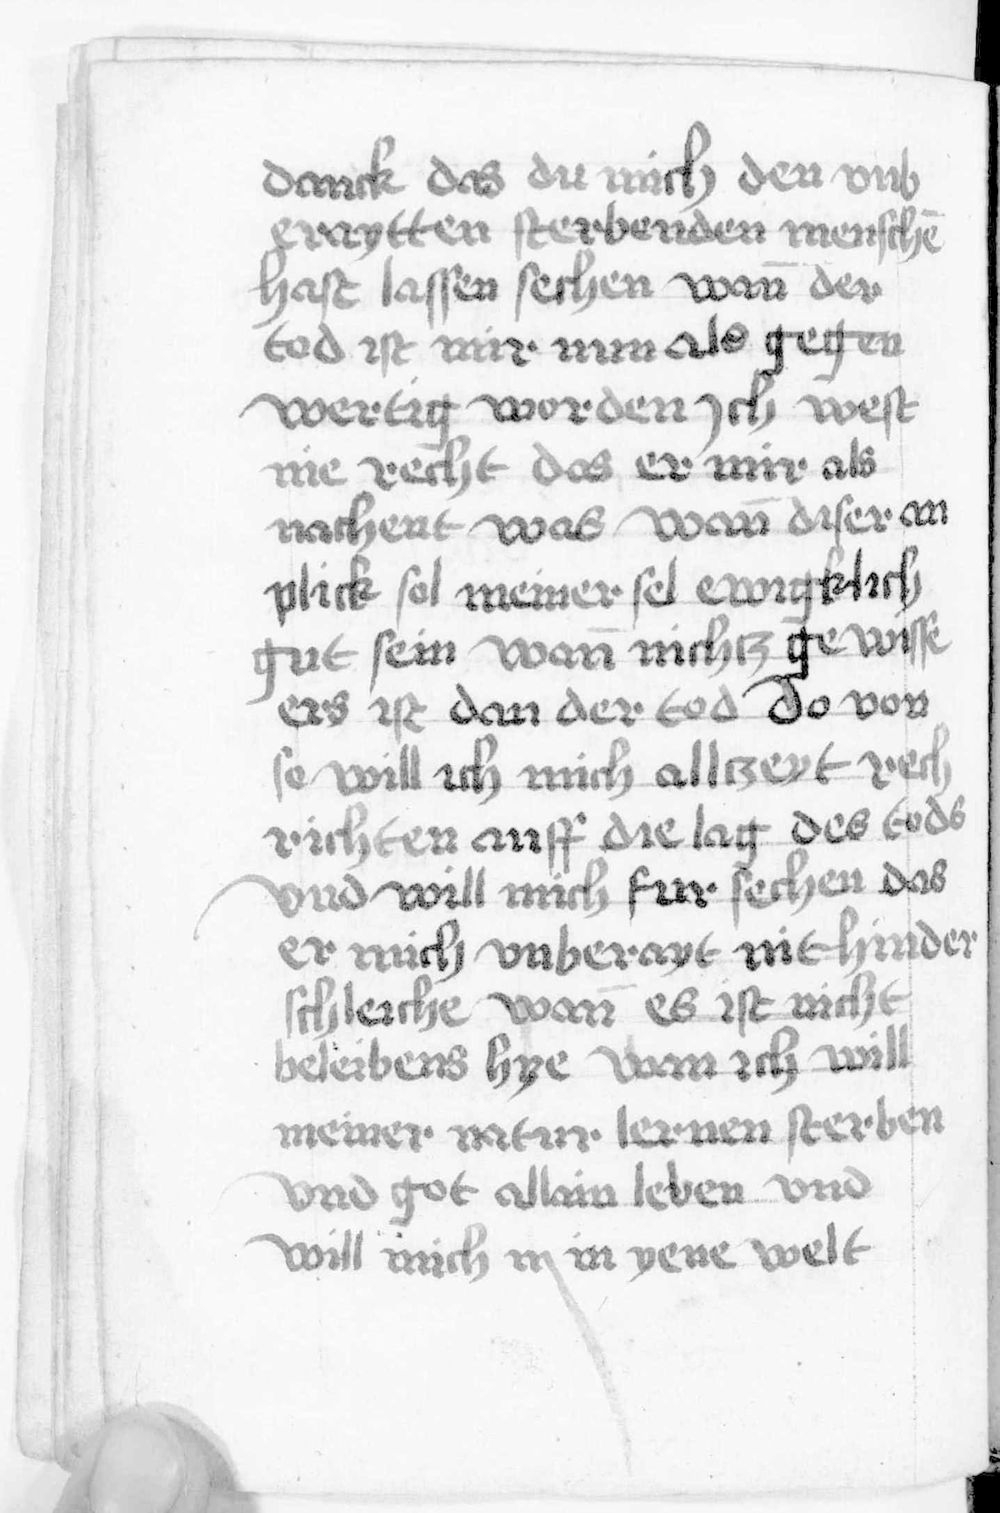 danck das du mich den vnb
eraytten sterbenden menschē
hast lassen sechen wan̄ der
tod ist mir nun als gegen
wertig worden jch west
nie recht das er mir als
nachent was wan̄ diser an
plick sol meiner sel ewigklich
gut sein wan̄ nichtz gewisse
ers ist dan der tod Do von
so will ich mich alltzeyt rech
richten auff die lag des tods
vnd will mich fur sechen das
er mich vnberayt nit hinder
schleiche wan̄ es ist nicht
beleibens hye wan ich will
meiner natur lernen sterben
vnd got allain leben vnd
will mich in in yene welt